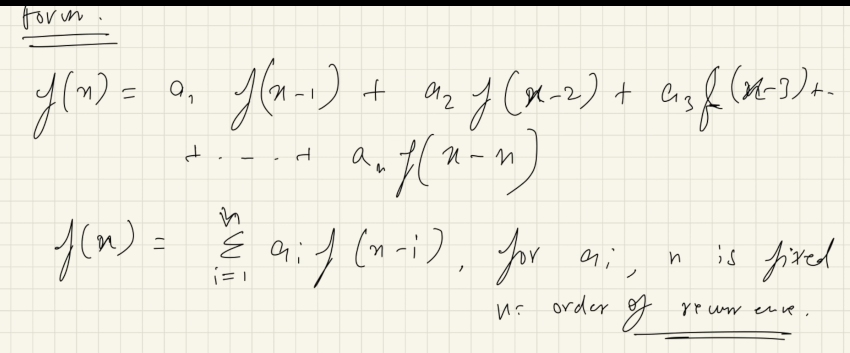 form.
f(n) = a₁ f(n-1) + a₂ f(n-2) + a₃ f(n-3) + -
+ - - - + aₙ f(n-n)
f(n) = Σᵢ₌₁ⁿ aᵢ f(n-i), for aᵢ, n is fixed
n: order of recurrence.